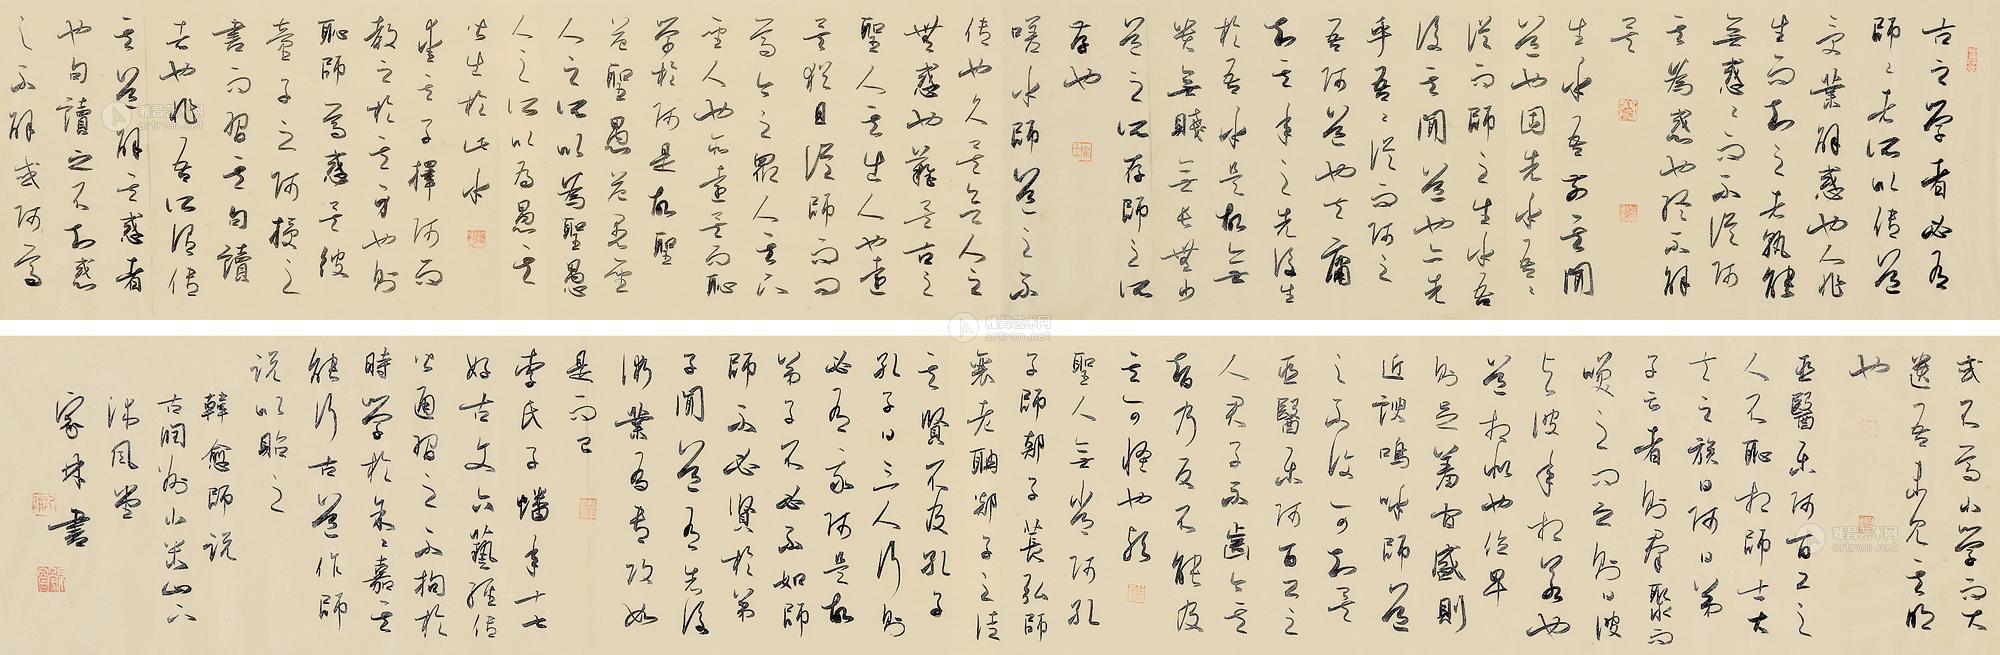 古之学者必有
師〻者所以传道
受業解惑也人非
生而知之者孰能
無惑〻而不従師
其為惑也终不解
矣
生乎吾前其聞
道也固先乎吾〻
従而師之生乎吾
後其聞道也亦先
乎吾吾〻従而師之
吾師道也夫庸
知其年之先後生
於吾乎是故無
貴無賤無长無少
道之所存師之所
存也
嗟乎師道之不
传也久矣欲人之
無惑也難矣古之
聖人其出人也遠
矣猶且従師而问
焉今之眾人其下
聖人也亦遠矣而恥
学於師是故聖
益聖愚益愚聖
人之所以為聖愚
人之所以為愚其
皆出於此乎
爱其子擇師而
教之於其身也則
恥師焉惑矣彼
童子之師授之
書而習其句讀
者也非吾所謂传
其道解其惑者
也句讀之不知惑
之不解或師焉
或不焉小学而大
遗吾未見其明
也
巫醫乐師百工之
人不恥相師士大
夫之族曰師曰弟
子云者則群聚而
笑之问之則曰彼
与彼年相若也
道相似也位卑
則足羞官盛則
近諛嗚呼師道
之不復可知矣
巫醫乐師百工之
人君子不齒今其
智乃反不能及
其可怪也歟
聖人無常師孔
子師郯子萇弘師
襄老聃郯子之徒
其賢不及孔子
孔子曰三人行則
必有我師是故
弟子不必不如師
師不必賢於弟
子聞道有先後
術業有专攻如
是而已
李氏子蟠年十七
好古文六藝經传
皆通習之不拘於
時学於余〻嘉其
能行古道作師
说以貽之
韓愈師说
古潤州小米山下
沐風堂
家林書
雅昌艺术网
artron.net